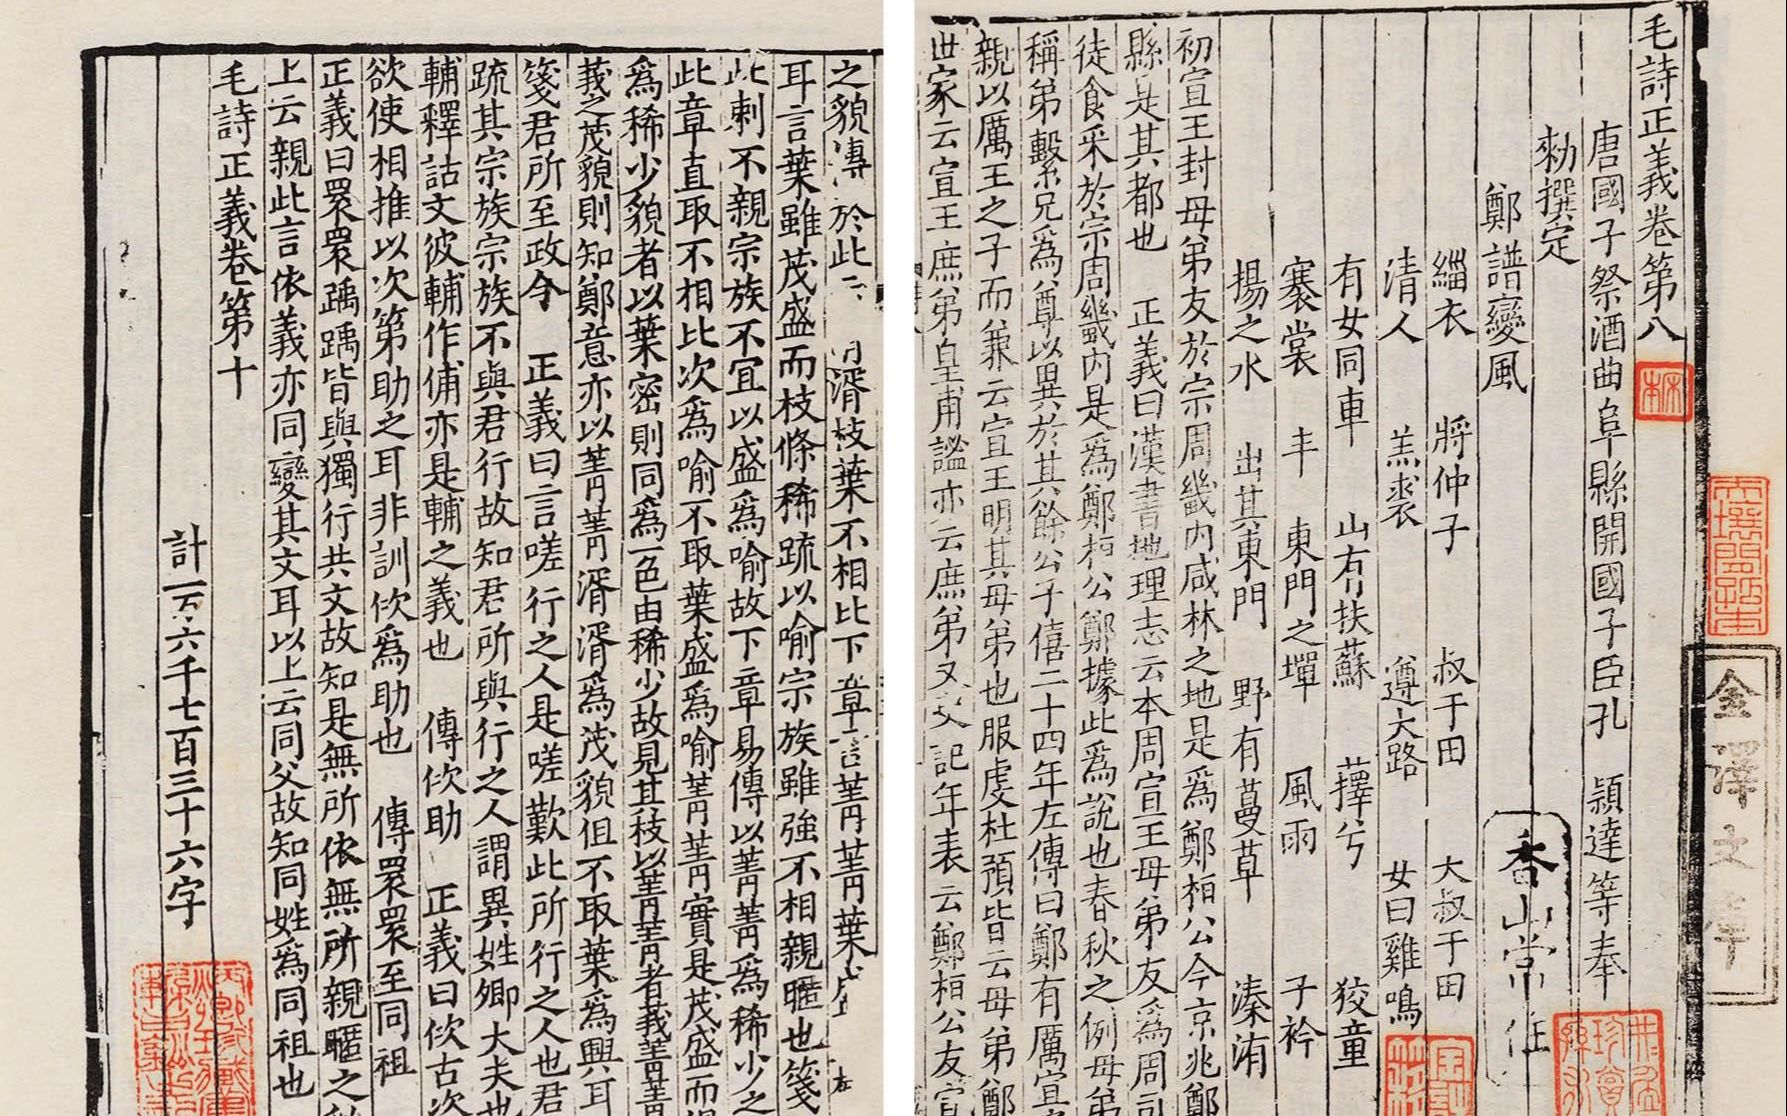 毛詩正義卷第八
唐國子祭酒曲阜縣開國子臣孔 穎達等奉
勑撰定
鄭譜變風
緇衣 將仲子 叔于田 大叔于田
清人 羔裘 遵大路 女曰雞鳴
有女同車 山有扶蘇 蘀兮 狡童
褰裳 丰 東門之墠 風雨 子衿
揚之水 出其東門 野有蔓草 溱洧
初宣王封母弟友於宗周畿内咸林之地是爲鄭桓公今京兆鄭
縣是其都也 正義曰漢書地理志云本周宣王母弟友爲周司
徒食采於宗周畿内是爲鄭桓公鄭據此爲說也春秋之例母弟
稱弟繫兄爲尊以異於其餘公子僖二十四年左傳曰鄭有厲宣
親以厲王之子而兼云宣王明其母弟也服虔杜預皆云母弟鄭
世家云宣王庶弟皇甫謐亦云庶弟又 記年表云鄭桓公友宣
金澤文庫
香山常住
之貌傳於此云 湑枝葉不相比下章言菁菁葉盛
耳言葉雖茂盛而枝條稀疏以喻宗族雖強不相親暱也箋
此刺不親宗族不宜以盛爲喻故下章易傳以菁菁爲稀少之
此章直取不相比次爲喻不取葉盛爲喻菁菁實是茂盛而
爲稀少貌者以葉密則同爲一色由稀少故見其枝以菁菁者莪菁菁
莪之茂貌則知鄭意亦以菁菁湑湑爲茂貌但不取葉爲興耳
箋君所至政令 正義曰言嗟行之人是嗟歎此所行之人也君
疏其宗族宗族不與君行故知君所與行之人謂異姓卿大夫也
輔釋詁文彼輔作俌亦是輔之義也 傳佽助 正義曰佽古次
欲使相推以次第助之耳非訓佽爲助也 傳睘睘至同祖
正義曰睘睘踽踽皆與獨行共文故知是無所依無所親暱之
上云親此言依義亦同變其文耳以上云同父故知同姓爲同祖也
毛詩正義卷第十
計一万六千七百三十六字